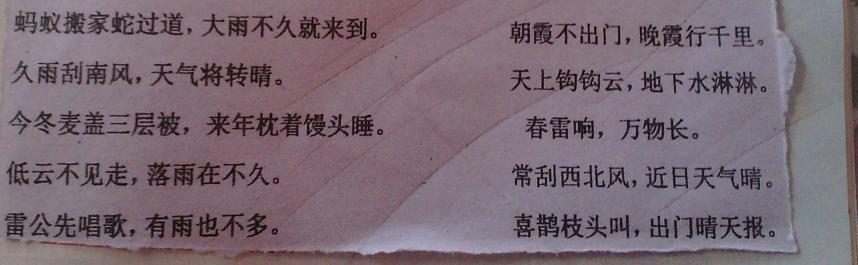 蚂蚁搬家蛇过道，大雨不久就来到。
朝霞不出门，晚霞行千里。
久雨刮南风，天气将转晴。
天上钩钩云，地下水淋淋。
今冬麦盖三层被，来年枕着馒头睡。
春雷响，万物长。
低云不见走，落雨在不久。
常刮西北风，近日天气晴。
雷公先唱歌，有雨也不多。
喜鹊枝头叫，出门晴天报。